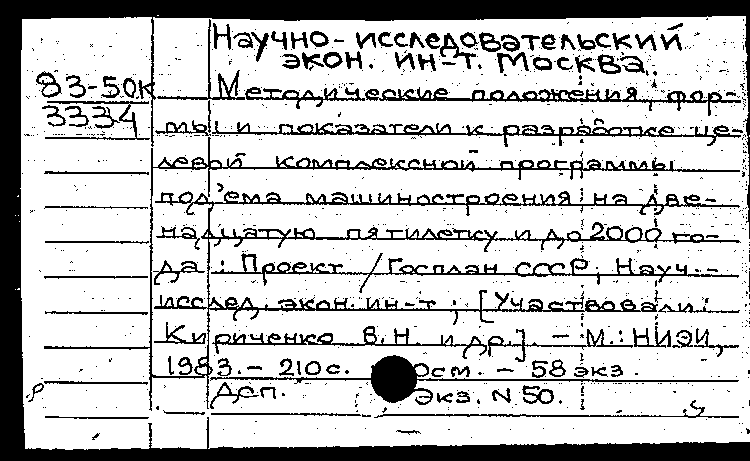 Научно-исследовательский
экон. ин-т. Москва.
83-50к
3334
Методические положения, фор-
мы и показатели к разработке це-
левой комплексной программы
под'ема машиностроения на две-
надцатую пятилетку и до 2000 го-
да: Проект / Госплан СССР, Науч.-
исслед. экон. ин-т; [Участвовали:
Кириченко В.Н. и др.]. - М.: НИЭИ,
1983. - 210 с. - 58 экз.
Деп. Экз. N 50.